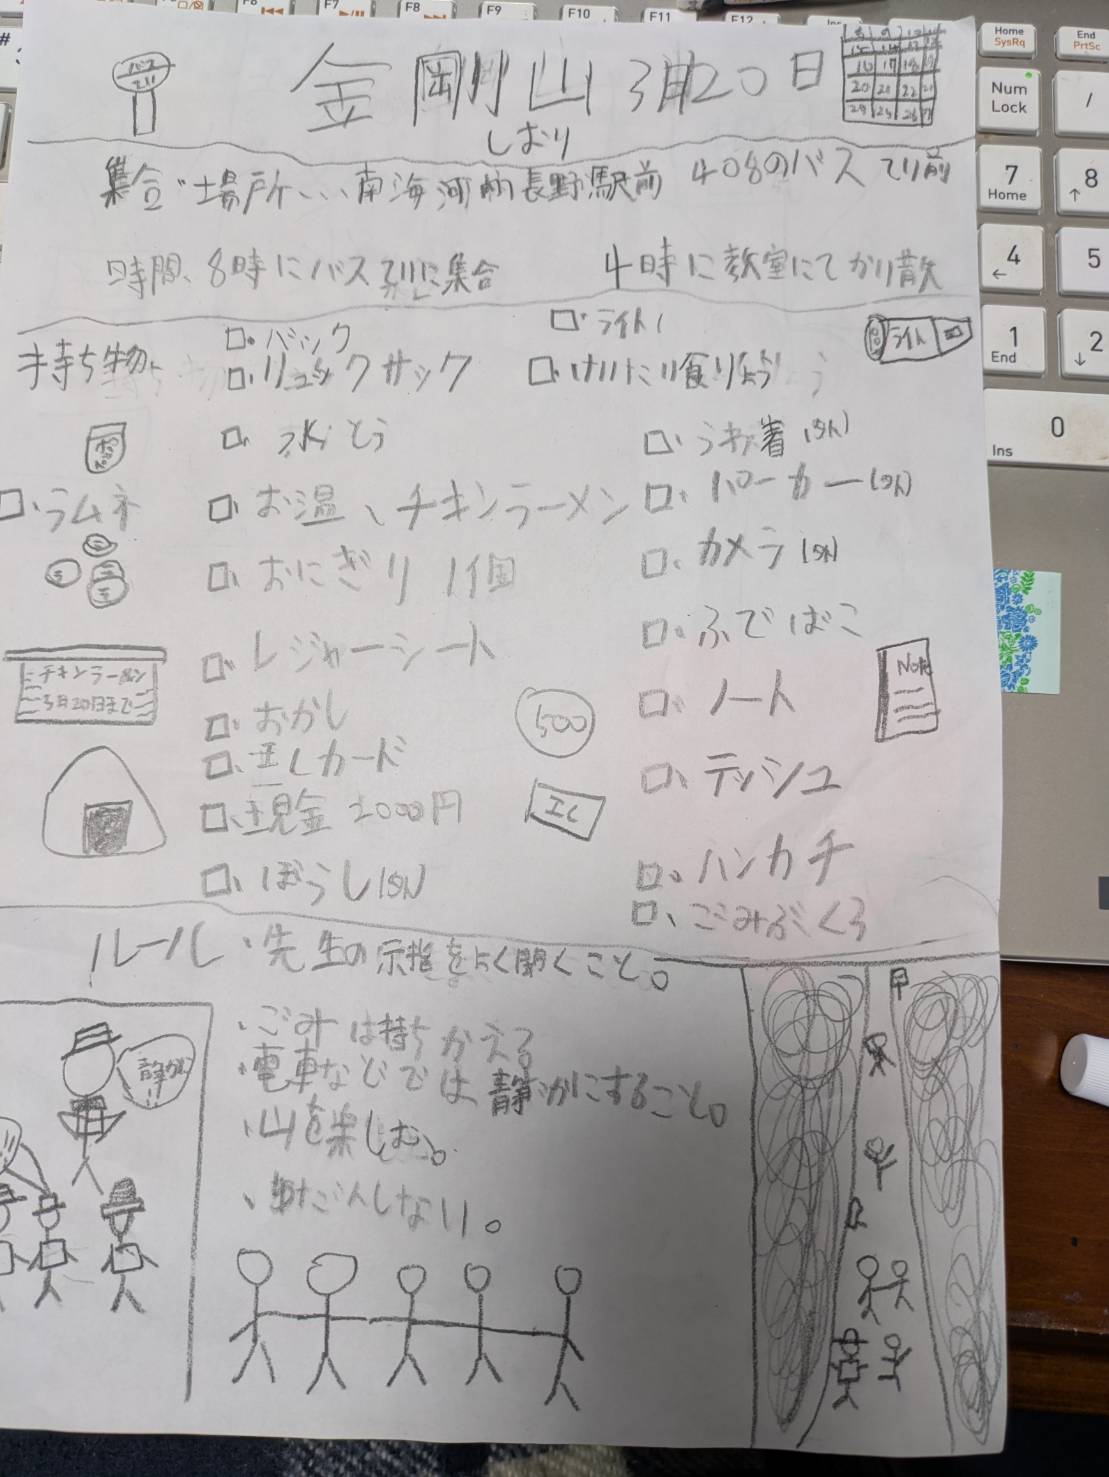 金剛山 3月20日
しおり
集合場所…南海河内長野駅前 408のバス
時間、8時にバス
に集合
4時に教室にてかい散
持ち物
バック
リュックサック
ライト1
ライト
水とう
うわ着(SN)
ラムネ
お温、チキンラーメン
パーカー(SN)
おにぎり 1個
カメラ(SN)
ふでばこ
レジャーシート
チキンラーメン
3月20日まで
おかし
500
ノート
Note
ICカード
IC
ティッシュ
現金 2000円
ぼうしSN
ハンカチ
ごみぶくろ
ルール・先生の指示をよく聞くこと。
・ごみは持ちかえる
・電車などでは静かにすること。
・山を楽しむ。
・けんしない。
静かに!!
F7
F8
F9
F10
F11
F12
Home
SysRq
End
PrtSc
Num
Lock
/
7
Home
8
4
5
1
End
2
0
Ins